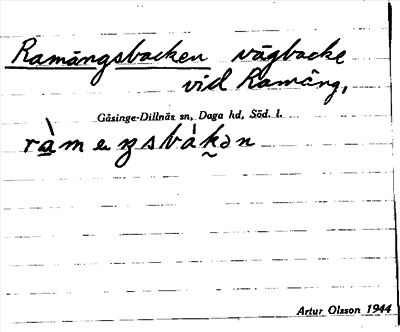 Ramängsbacken vägbacke
vid Ramäng.
Gåsinge-Dillnäs sn, Daga hd, Söd. l.
ràmeŋsbàkən
Artur Olsson 1944